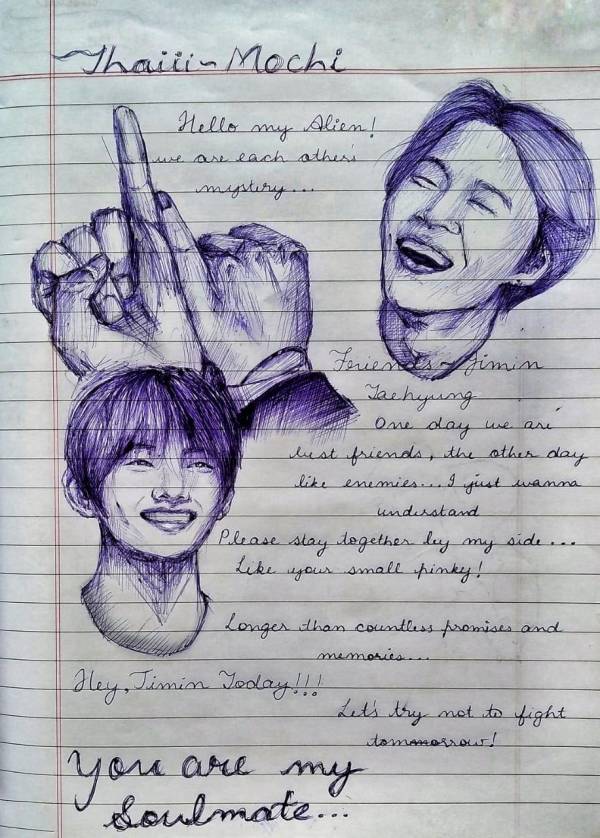 ~Thaiii~Mochi
Hello my Alien!
we are each other's
mystery...
Friends~Jimin
Taehyung
One day we are
best friends, the other day
like enemies...I just wanna
understand
Please stay together by my side...
Like your small pinky!
Longer than countless promises and
memories...
Hey, Jimin Today!!!
Let's try not to fight
tommorrow!
You are my
Soulmate...